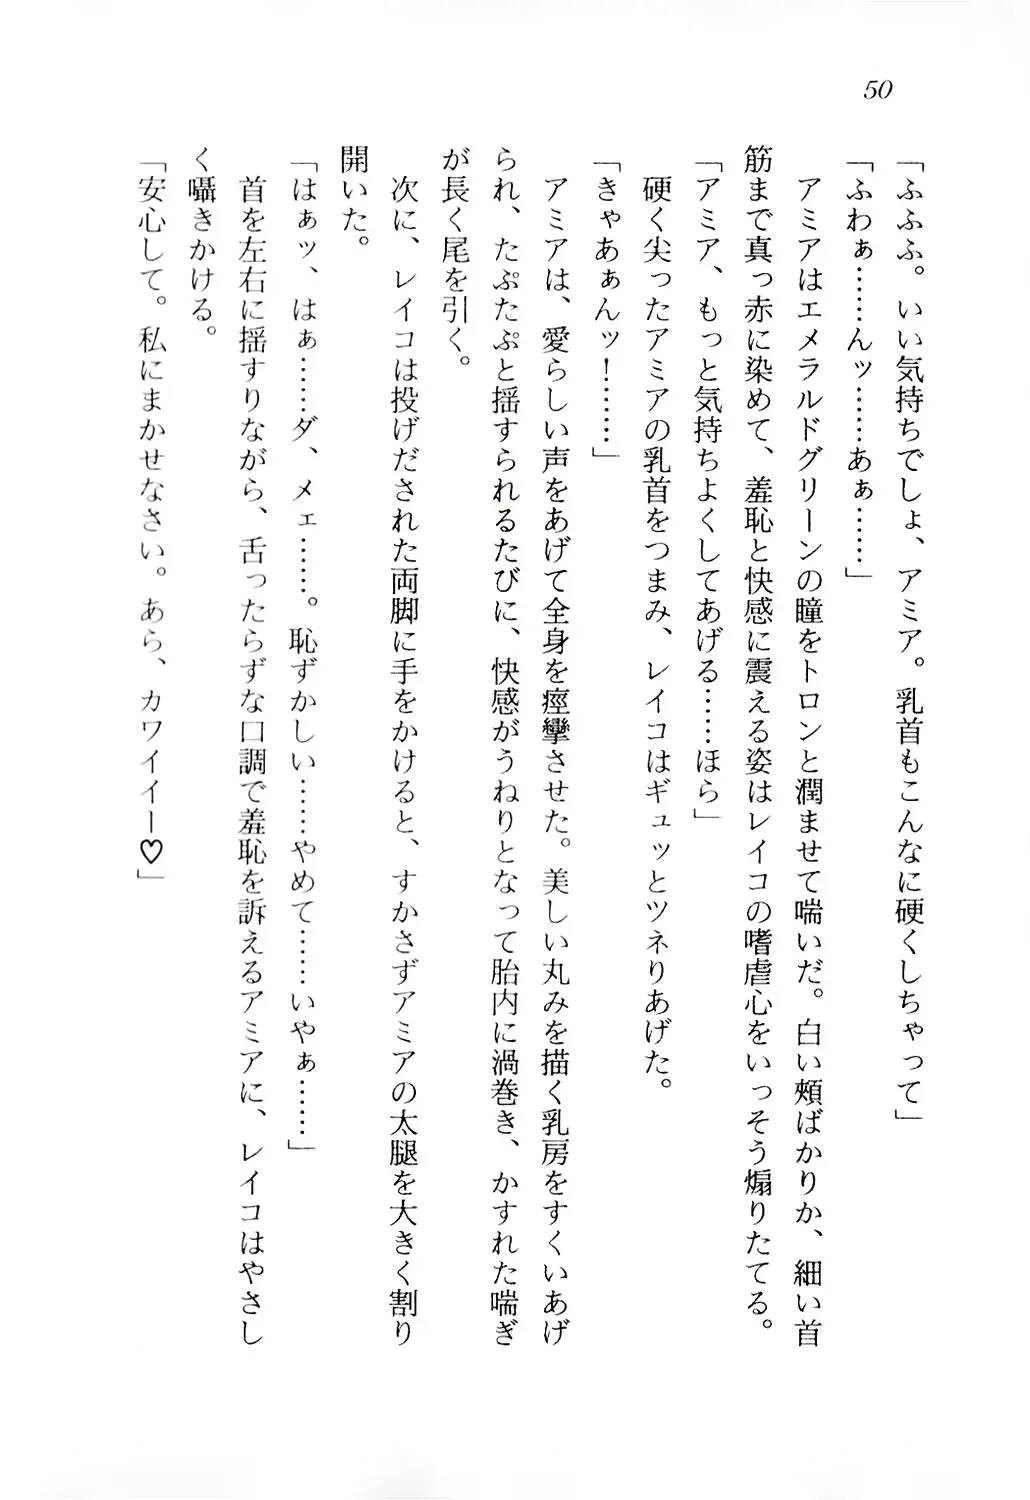 50
「ふふふ。いい気持ちでしょ、アミア。乳首もこんなに硬くしちゃって」
「ふわぁ……んッ……あぁ……」
　アミアはエメラルドグリーンの瞳をトロンと潤ませて喘いだ。白い頰ばかりか、細い首
筋まで真っ赤に染めて、羞恥と快感に震える姿はレイコの嗜虐心をいっそう煽りたてる。
「アミア、もっと気持ちよくしてあげる……ほら」
　硬く尖ったアミアの乳首をつまみ、レイコはギュッとツネりあげた。
「きゃあぁんッ！……」
　アミアは、愛らしい声をあげて全身を痙攣させた。美しい丸みを描く乳房をすくいあげ
られ、たぷたぷと揺すられるたびに、快感がうねりとなって胎内に渦巻き、かすれた喘ぎ
が長く尾を引く。
　次に、レイコは投げだされた両脚に手をかけると、すかさずアミアの太腿を大きく割り
開いた。
「はぁッ、はぁ……ダ、メェ……。恥ずかしい……やめて……いやぁ……」
　首を左右に揺すりながら、舌ったらずな口調で羞恥を訴えるアミアに、レイコはやさし
く囁きかける。
「安心して。私にまかせなさい。あら、カワイイー♡」